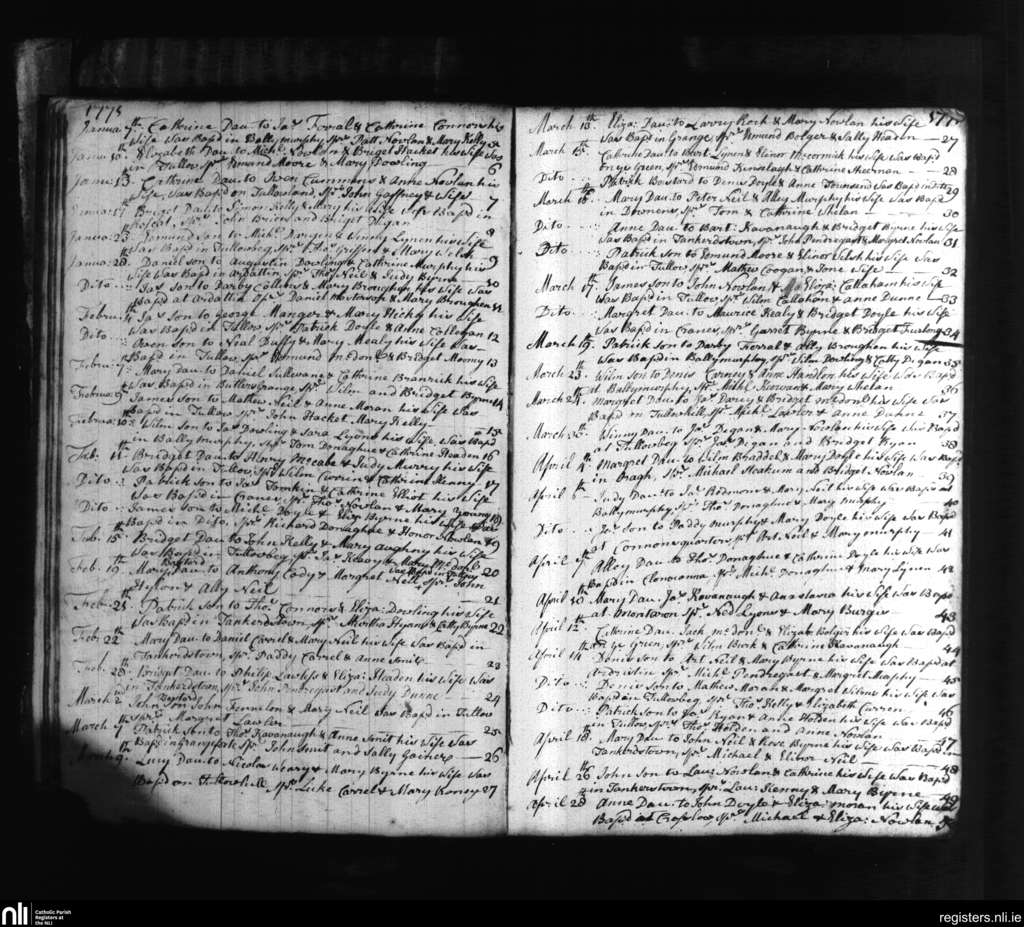 1775
Janua: 7th Cathrine Dau: to Jas Forral & Cathrine Connors his
Wife Was Bapd in Ballymurphy Sprs Patt: Nowlan & Mary Kelly
Janua: 10 Elizabeth Dau: to Michl Nowlan & Briget Hacket his Wife Was
in Tullow Sprs Edmund Moore & Mary Dowling 6
Janua: 13 Cathrine Dau: to Owen Cummons & Anne Nowlan his
Wife, Was Bapd on Tullowland, Sprs John Gaffney & Wife 7
Janua: 17 Briget Dau: to Simon Kelly & Mary his Wife Was Bapd in
Sprs John Brien and Briget Digan
Janua: 23 Edmund Son to Michl & Winny Lynen his Wife 8
Was Bapd in Tullowbeg Sprs Thos Griffen & Mary Welsh 9
Janua: 28 Daniel son to Augustin Dowling & Cathrine Murphy his
Wife Was Bapd in Ardattin Sprs Thos Neil & Judy Byrne
Dito Jas Son to Darby Callow & Mary Broughen his Wife Was 10
Bapd at Ardattin Sprs Daniel & Mary Broughen 11
Febru: Jas Son to George Manger & Mary Hicky his Wife
Was Bapd in Tullow Sprs Patrick Doyle & Anne Callogan 12
Dito Owen Son to Neal Duffy & Mary Mealy his Wife Was
Bapd in Tullow, Sprs Edmund McDonl & Bridget Moony 13
Febru: 7 Mary Dau: to Daniel Sullevane & Cathrine Branrick his Wife
Was Bapd in ButlersGrange Sprs Wilm and Bridget Byrne 14
Februa: 9 James Son to Mathew Neil & Anne Moran his Wife Was
Bapd in Tullow Sprs John Hacket Mary Kelly
Februa: 10 Wilm Son to Jas Dowling & Sara Lyons his Wife Was Bapd 15
in Ballymurphy, Sprs Tom Donaghue & Cathrine Headen 16
Feb: 11 Bridget Dau: to Harry McCabe & Judy Murry his Wife
Was Bapd in Tullow, Sprs Wilm Curren & Cathrine Heany 17
Dito Patrick Son to Jas Tomkin & Cathrine Elliot his Wife
Was Bapd in Craney Sprs Thos Nowlan & Mary Young 18
Dito James Son to Michl Doyle & Eliza Byrne his Wife Was
Bapd in Dito, Sprs Richard Donaghue & Honor Nowlan 19
Feb: 15 Bridget Dau: to John Kelly & Mary Aughny his Wife
Was Bapd in Tullowbeg Sprs Jas Keary & Mary McDonl 20
Feb: 19 Bastord Mary Dau: to Anthony Cody & Margret Neil Was Bapd in Sprs John
Hylon & Ally Neil 21
Feb: 21 Patrick Son to Thos Connors & Eliza: Dowling his Wife
Was Bapd in Tankerdstown, Sprs Murtha Hyams & Catty Byrne 22
Febr: 22th Mary Dau: to Daniel Carrel & Mary Neil his Wife Was Bapd in
Tankerdstown, Sprs Paddy Carrel & Anne Smit
Feb: 28 Bridget Dau: to Philip Lawless & Eliza: Headen his Wife Was 23
in Tankerdstown, Sprs John Pendregast and Judy Dunne 24
March 2 Bastord John Son John Fennelon & Mary Neil Was Bapd in Tullow
Sprs Margret Lawlor
March 7th Patrick Son to Thos Kavanaugh & Anne Smit his Wife Was 25
Bapd in Grangefort Sprs John Smit and Sally Gainers 26
March 9 Lucy Dau: to Nicolas Weary & Mary Byrne his Wife Was
Bapd on Tullowhill, Sprs Luke Carrel & Mary Keney 27
1775
March 10: Eliza: Dau: to Larry Roch & Mary Nowlan his Wife
Was Bapd in Grange, Sprs Edmund Bolger & Sally Headon 27
March 15 Cathrine Dau: to Bart: Lynen & Elinor McCormick his Wife Was Bapd
on ye Green, Sprs Edmund Kenselagh & Cathrine Heernan 28
Dito Patrick Bastord to Denis Doyle & Anne Townsend Was Bapd in Dito 29
March 16 Mary Dau: to Peter Neil & Alley Murphy his Wife Was Bapd
in Dromone, Sprs Tom & Cathrine Whelan 30
Dito Anne Dau: to Bart: Kavanaugh & Bridget Byrne his Wife
Was Bapd in Tankerdstown, Sprs John Pendregast & Margret Nowlan 31
Dito Patrick Son to Edmund Moore & Elinor Welsh his Wife Was
Bapd in Tullow, Sprs Mathew Coogan & Jone Wife 32
March 17 James Son to John Nowlan & Eliza: Callahan his Wife
Was Bapd in Tullow Sprs Wilm Callahan & Anne Dunne 33
Dito Margret Dau: to Maurice Healy & Bridget Doyle his Wife
Was Bapd in Craney, Sprs Garret Byrne & Bridget Furlong 34
March 19: Patrick Son to Darby Forral & Ally Broughan his Wife
Was Bapd in Ballymurphy, Sprs Wilm Dowling & Catty Digan 35
March 23 Wilm Son to Denis Carney & Anne Hanlon his Wife Was Bapd
at Ballymurphy, Sprs Michl Kirwan & Mary Whelan 36
March 24 Margret Dau: to Jas Darcy & Bridget McDonl his Wife Was
Bapd in Tullowhill Sprs Michl Lawlor & Anne Dunne 37
March 30 Winny Dau: to Jas Degan & Mary Nowlan his Wife Was Bapd
at Tullowbeg Sprs Jas Digan and Bridget Ryan 38
April 4 Margret Dau: to Wilm Braddel & Mary Doyle his Wife Was Bapd
in Cragh, Sprs Michael Hoakum and Bridget Nowlan 39
April 6 Judy Dau: to Jas Redmon & Mary Neil his Wife Was Bapd at
Ballymurphy Sprs Thos Donaghue & Mary Murphy 40
Dito Jas Son to Paddy Murphy & Mary Doyle his Wife Was Bapd
at Connorsquarter, Sprs Art: Neil & Mary Murphy 41
April 9 Alley Dau: to Thos Donaghue & Cathrine Doyle his Wife Was
Bapd in Clonconna Sprs Michl Donaghue & Mary Lynen 42
April 10 Mary Dau: Jas Kavanaugh & Anastasia his Wife Was Bapd
at Sprs Ned Lyons & Mary Burges 43
April 12 Cathrine Dau: Jack McDonl & Elizab: Bolger his Wife Was Bapd
on ye Green, Sprs Wilm Birk & Cathrine Kavanaugh 44
April 14 Denis Son to Art: Neil & Mary Byrne his Wife Was Bapd at
Ardristin Sprs Michl Pendregast & Margret Murphy 45
Dito Denis Son to Mathew Moran & Margret his Wife Was
Bapd in Tullowbeg Sprs Thos Kelly & Elizabeth Curren
Dito Patrick Son to Jas Ryan & Anne Holden his Wife Was Bapd 46
in Tullow, Sprs Thos Holden and Anne Nowlan 47
April 18 Mary Dau: to John Neil & Rose Byrne his Wife Was Bapd in
Tankerdstown, Sprs Michael & Elinor Neil 48
April 26 John Son to Lau: Nowlan & Cathrine his Wife Was Bapd
in Tankerstown, Sprs Lau: Kenny & Mary Byrne 49
April 28 Anne Dau: to John Doyle & Eliza: Moran his Wife Was
Bapd at Croslow, Sprs Michael & Eliza: Nowlan
nli
Catholic Parish
Registers at
the NLI
registers.nli.ie